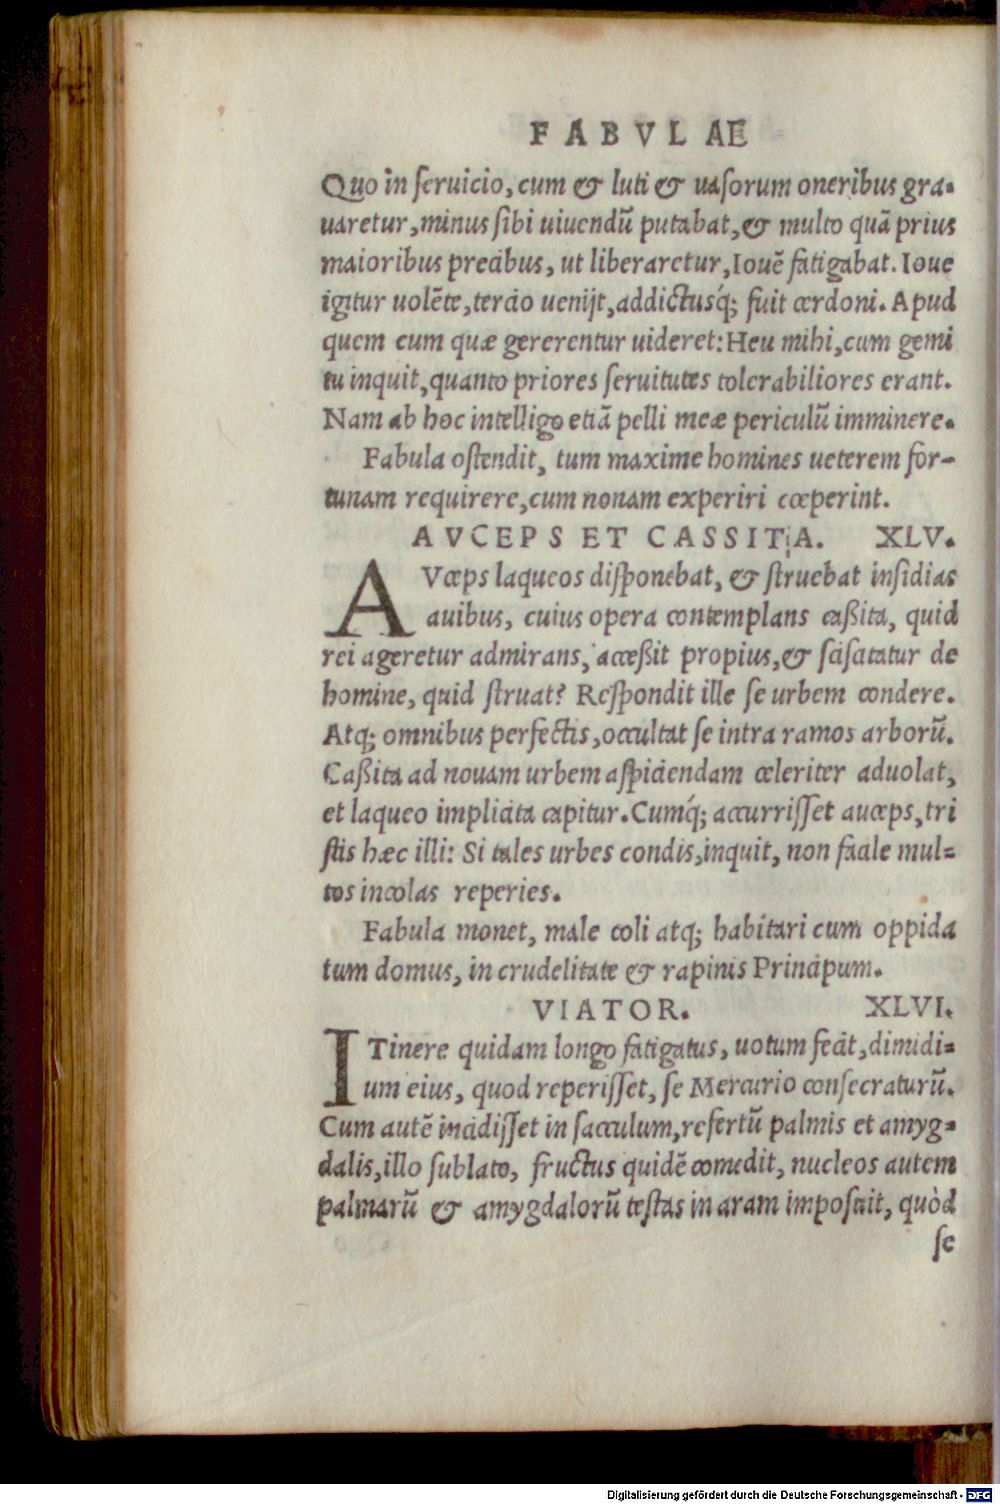 FABVLAE
Quo in seruicio, cum & luti & uasorum oneribus gra-
uaretur, minus sibi uiuendũ putabat, & multo quã prius
maioribus precibus, ut liberaretur, Iouẽ fatigabat. Ioue
igitur uolẽte, tercio uenijt, addictusq́; fuit cerdoni. Apud
quem cum quæ gererentur uideret: Heu mihi, cum gemi
tu inquit, quanto priores seruitutes tolerabiliores erant.
Nam ab hoc intelligo etiã pelli meæ periculũ imminere.
Fabula ostendit, tum maxime homines ueterem for-
tunam requirere, cum nonam experiri cœperint.
AVCEPS ET CASSITA. XLV.
AVceps laqueos disponebat, & struebat insidias
auibus, cuius opera contemplans caßita, quid
rei ageretur admirans, acceßit propius, & sciscitatur de
homine, quid struat? Respondit ille se urbem condere.
Atq; omnibus perfectis, occultat se intra ramos arborũ.
Caßita ad nouam urbem aspiciendam celeriter aduolat,
et laqueo implicita capitur. Cumq́; accurrisset auceps, tri
stis hæc illi: Si tales urbes condis, inquit, non facile mul-
tos incolas reperies.
Fabula monet, male coli atq; habitari cum oppida
tum domus, in crudelitate & rapinis Principum.
VIATOR. XLVI.
ITinere quidam longo fatigatus, uotum fecit, dimidi-
um eius, quod reperisset, se Mercurio consecraturũ.
Cum autẽ incidisset in sacculum, refertũ palmis et amyg-
dalis, illo sublato, fructus quidẽ comedit, nucleos autem
palmarũ & amygdalorũ testas in aram imposuit, quòd
se
Digitalisierung gefördert durch die Deutsche Forschungsgemeinschaft - DFG